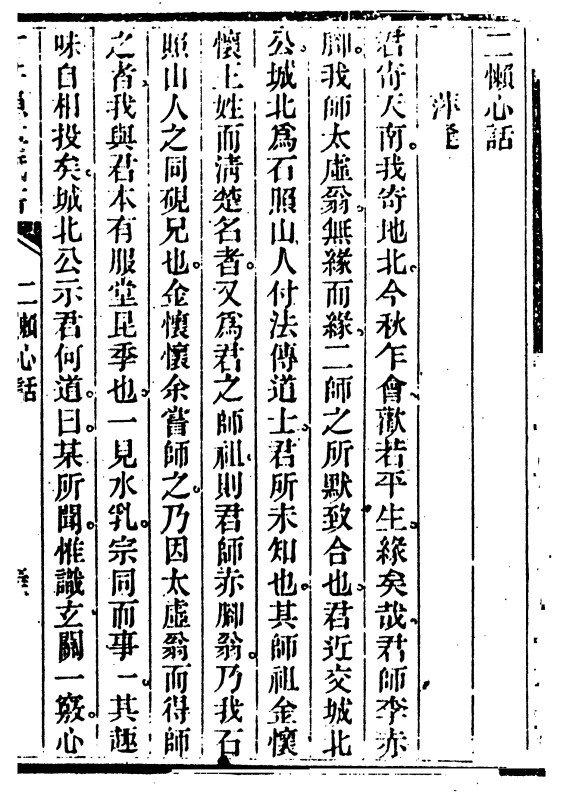 二懶心話
萍逢
君寄天南。我寄地北。今秋乍會。歡若平生。緣矣哉。君師李赤
脚。我師太虛翁。無緣而緣。二師之所默致合也。君近交城北
公。城北爲石照山人付法傳道士。君所未知也。其師祖金懷
懷上姓而清楚名者。又爲君之師祖。則君師赤脚翁。乃我石
照山人之同硯兄也。金懷懷余嘗師之。乃因太虛翁而得師
之者。我與君本有服堂昆季也。一見水乳。宗同而事一。其趣
味自相投矣。城北公示君何道。曰。某所聞。惟識玄關一竅。心
二懶心話